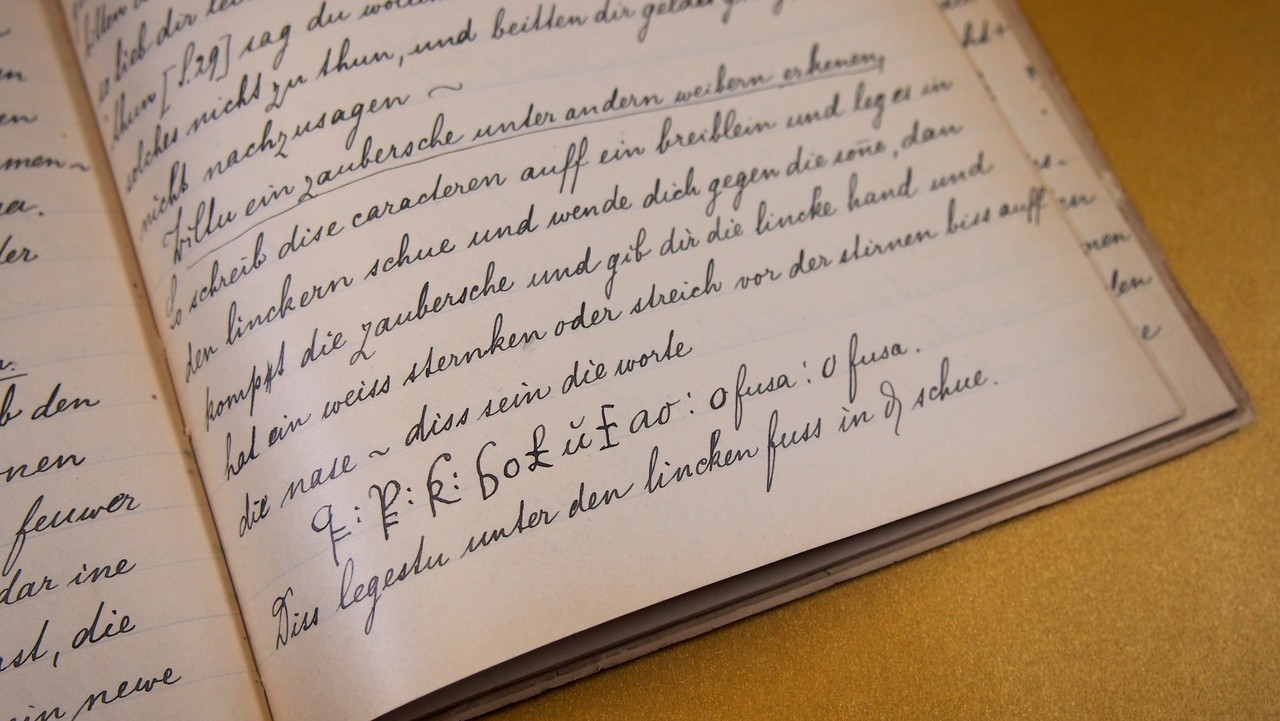 en
en
men~
sa.
der
b den
onen
feuwer
dar ine
rst, die
in newe
so lieb dir
thun [S.29] sag du
solches nicht zu thun, und beitten dir geldes
nicht nachzusagen ~
Willu ein zaubersche unter andern weibern erkenen,
So schreib dise caracteren auff ein breiblein und leg es in
den linckern schue und wende dich gegen die sone, dan
kompst die zaubersche und gib dir die lincke hand und
hat ein weiss sternken oder streich vor der stirnen biss auff
die nase ~ diss sein die worte
q : p : k : bo£ ŭ £ ao : o fusa : o fusa .
Diss legestu unter den lincken fuss in d schue.
nen
den
e